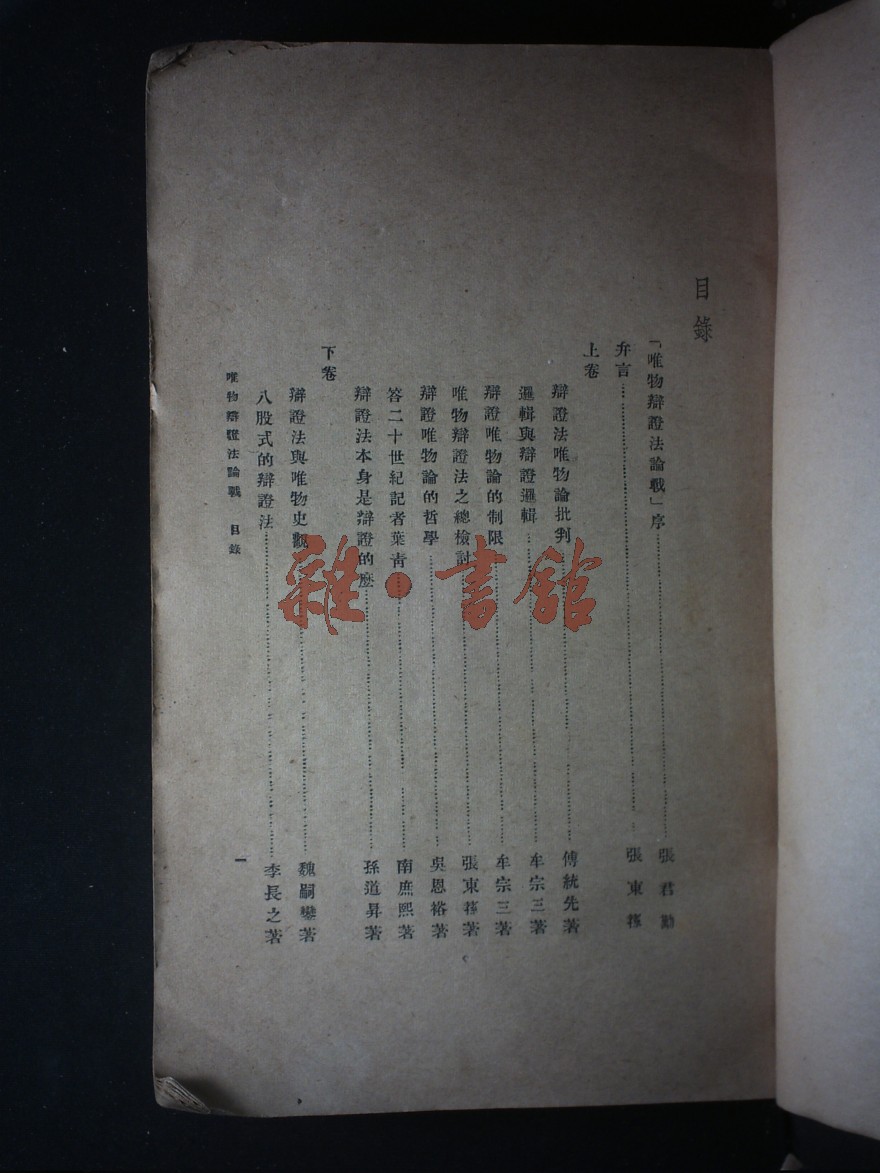 目錄
「唯物辯證法論戰」序 張君勱
弁言 張東蓀
上卷
辯證法唯物論批判 傅統先著
邏輯與辯證邏輯 牟宗三著
辯證唯物論的制限 牟宗三著
唯物辯證法之總檢討 張東蓀著
辯證唯物論的哲學 吳恩裕著
答二十世紀記者葉青 南庶熙著
辯證法本身是辯證的麼 孫道昇著
下卷
辯證法與唯物史觀 魏嗣鑾著
八股式的辯證法 李長之著
唯物辯證法論戰 目錄
一
雜·書館